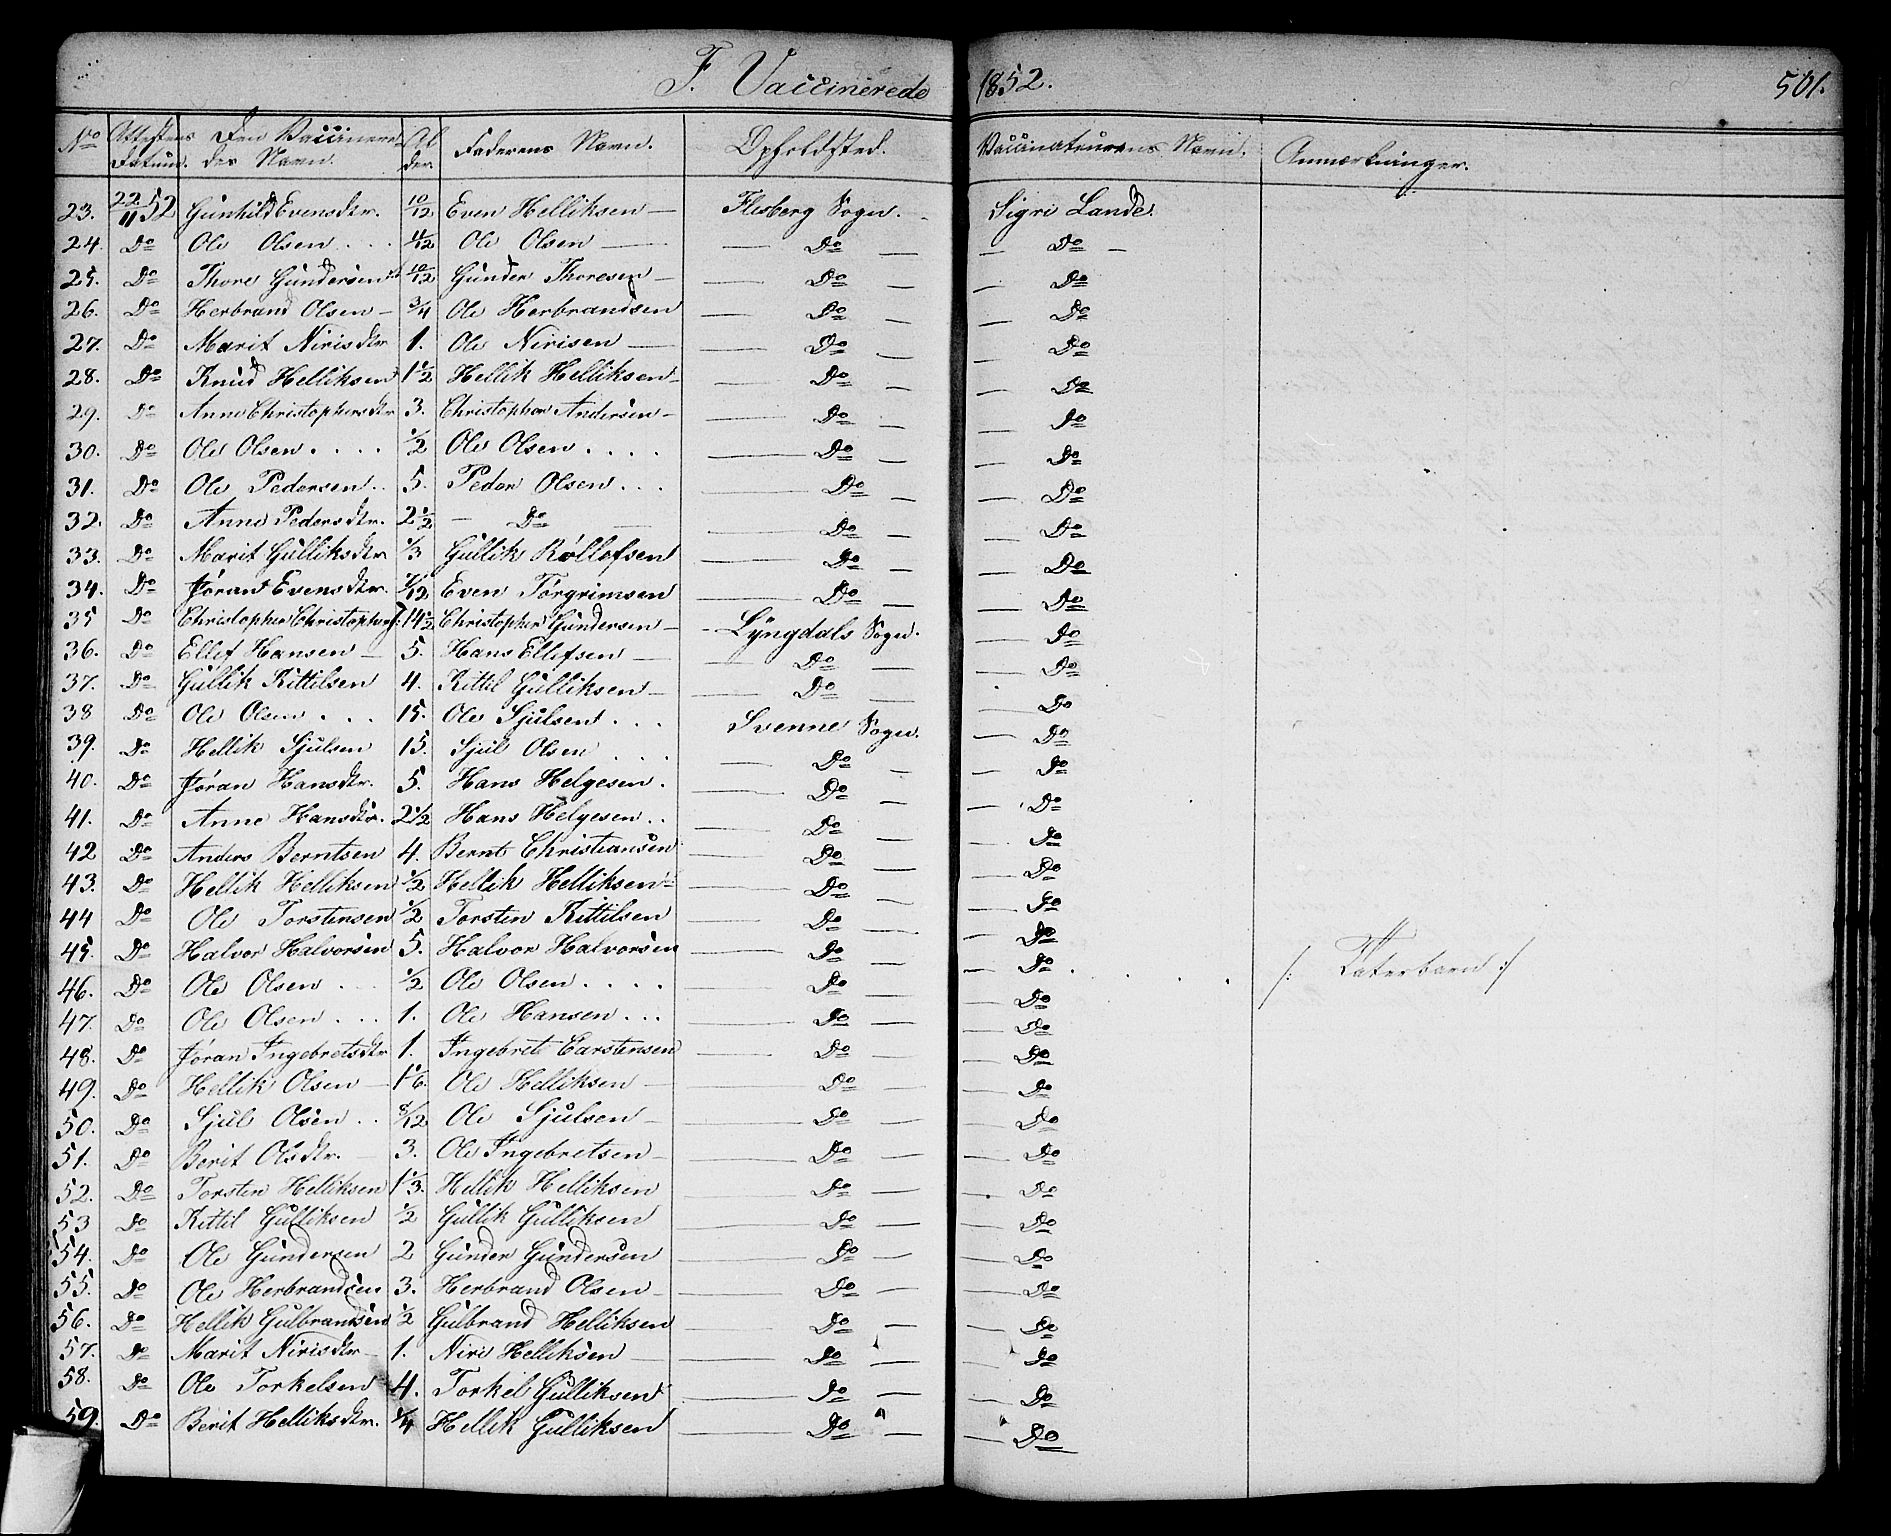 F. Vaccinerede 1852. 501.
No Attestens Datum. Den Vaccineredes Navn. Alder. Faderens Navn. Opholdsted. Vaccinateurens Navn. Anmærkninger.
23. 22/11 52 Gunhild Evensdtr. 10/12 Even Helliksen — Flesberg Sogn. Sigri Lande.
24. Do Ole Olsen . . . 4/12 Ole Olsen — Do — Do —
25. Do Thore Gundersen 10/12 Gunder Thoresen — Do — Do
26. Do Herbrand Olsen — 3/4 Ole Herbrandsen — Do — Do
27. Do Marit Nirisdtr 1. Ole Nirisen — Do — Do
28. Do Knud Helliksen 1 1/2 Hellik Helliksen — Do — Do
29. Do Anne Christophersdtr 3. Christopher Andersen — Do — Do
30. Do Ole Olsen . . . . 1/2 Ole Olsen . . . . Do — Do
31. Do Ole Pedersen . . 5. Peder Olsen . . . Do — Do
32. Do Anne Pedersdtr. 2 1/2 — Do — Do — Do
33. Do Marit Gulliksdtr. 1/3 Gullik Rollofsen — Do — Do
34. Do Jøran Evensdtr. /12 Even Torgrimsen — Do — Do
35 Do Christopher Christophers: 14 1/2 Christopher Gundersen — Lyngdals Sogn. — Do
36. Do Ellef Hansen — 5. Hans Ellefsen — Do — Do
37. Do Gullik Kittilsen 4. Kittil Gulliksen — Do — Do
38 Do Ole Olsen . . . 15. Ole Sjulsen . . . Svenne Sogn. — Do
39. Do Hellik Sjulsen 15. Sjul Olsen . . . Do — Do
40. Do Jøran Hansdtr. 5. Hans Helgesen . — Do — Do
41. Do Anne Hansdtr. 2 1/2 Hans Helgesen . . — Do — Do
42 Do Anders Berntsen 4. Bernt Christiansen — Do — Do
43. Do Hellik Helliksen 1/2 Hellik Helliksen — Do — Do
44 Do Ole Torstensen 1/2 Torsten Kittilsen — Do — Do
45. Do Halvor Halvorsen 5. Halvor Halvorsen — Do — Do . . . . /: Taterbarn :/
46. Do Ole Olsen . . . 1/2 Ole Olsen . . . . — Do — Do
47. Do Ole Olsen . . . 1. Ole Hansen . . . — Do — Do
48. Do Jøran Ingebretsdtr 1. Ingebret Carstensen — Do — Do
49. Do Hellik Olsen — 1 1/6. Ole Helliksen — Do — Do
50. Do Sjul Olsen . . 8/12 Ole Sjulsen — Do — Do
51. Do Berit Olsdtr. — 3. Ole Ingebretsen — Do — Do
52. Do Torsten Helliksen 1 1/3. Hellik Helliksen — Do — Do
53 Do Kittil Gulliksen 1/2 Gullik Gulliksen — Do — Do
54. Do Ole Gundersen 2 Gunder Gundersen — Do — Do
55. Do Ole Herbrandsen 3. Herbrand Olsen — Do — Do
56. Do Hellik Gulbrandsen 1/2 Gulbrand Helliksen — Do — Do
57. Do Marit Nirisdtr — 1. Niri Helliksen — Do — Do
58. Do Ole Torkelsen 4. Torkel Gulliksen — Do — Do
59. Do Berit Helliksdtr. 1/4 Hellik Gulliksen — Do — Do